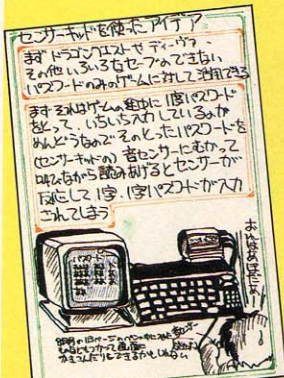 センサーキットを使ったアイデア
まず ドラゴンクエストや ディーヴァ、
その他いろいろなセーブのできない
パスワードのみのゲームに対して活用できる
まずそれはゲームの途中に1度パスワード
をとって、いちいち入力しているのが
めんどうなので、そのとったパスワードを
(センサーキットの)音センサーにむかって
叫びながら読みあげるとセンサーが
反応して1字、1字パスワードが入力
されてしまう
パスワード